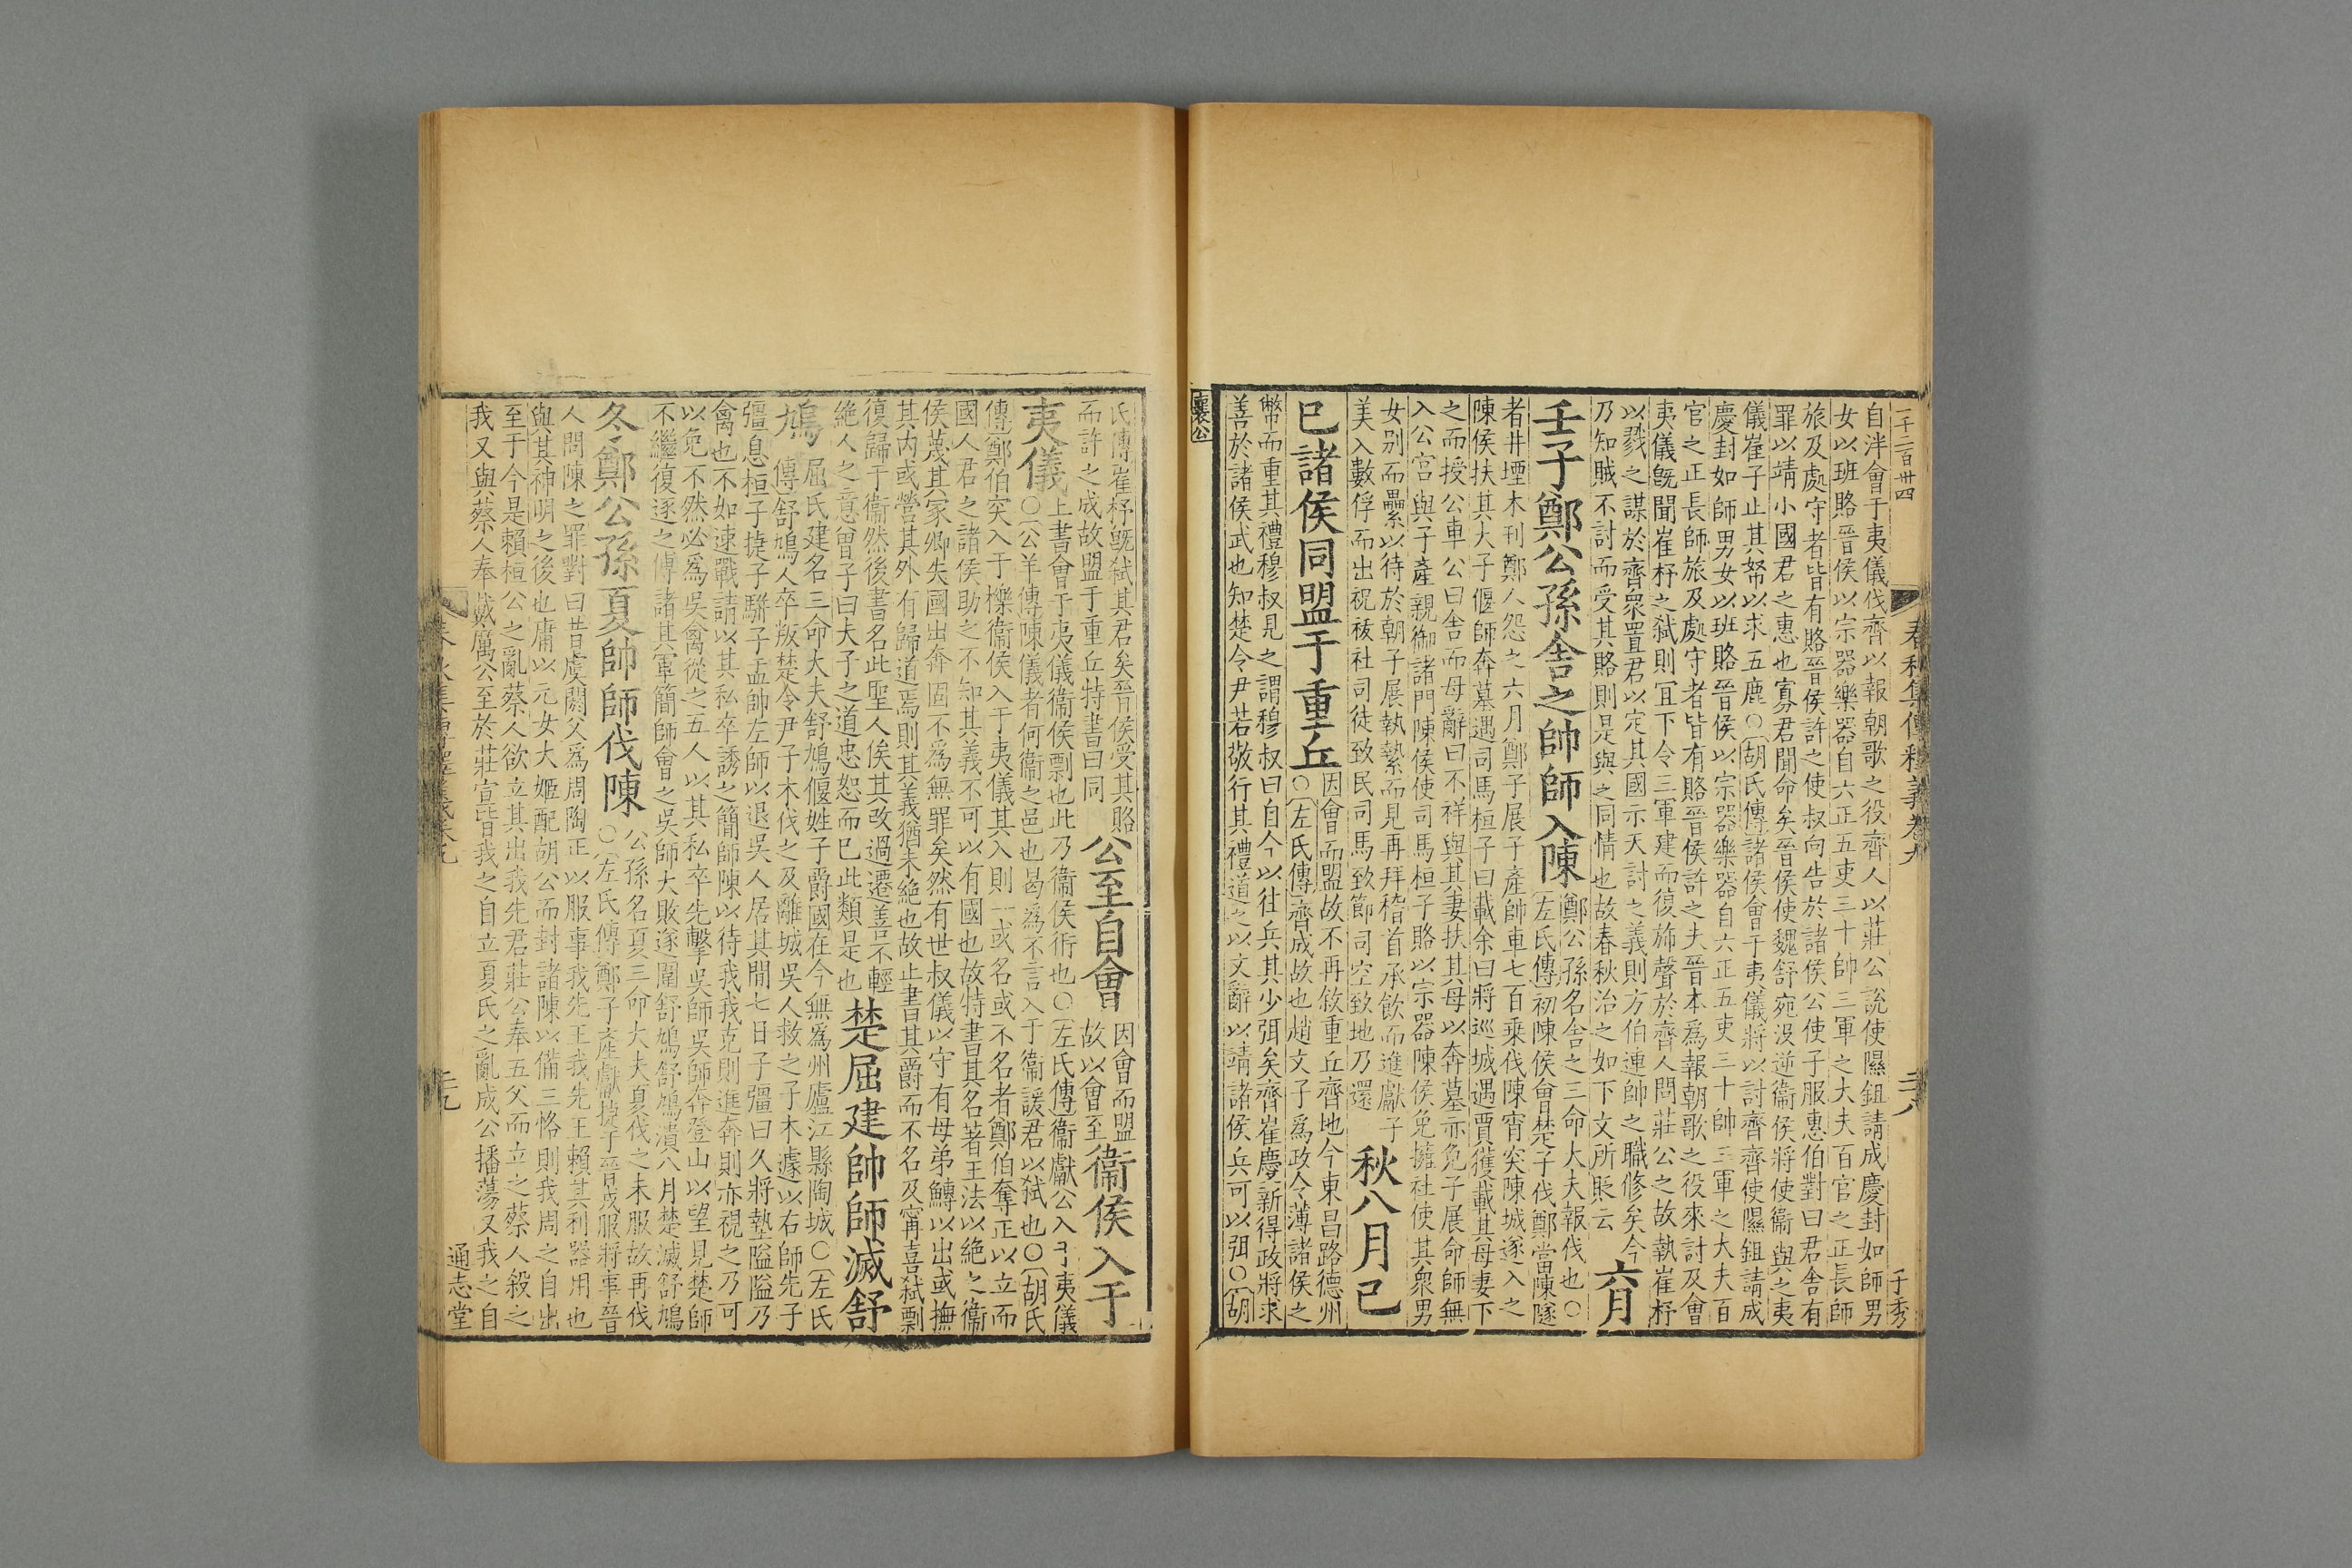 一千二百卌四
春秋集傳釋義卷九
二八
于秀
自泮會于夷儀伐齊以報朝歌之役齊人以莊公說使隰鉏請成慶封如師男
女以班賂晉侯以宗器樂器自六正五吏三十帥三軍之大夫百官之正長師
旅及處守者皆有賂晉侯許之使叔向告於諸侯公使子服惠伯對曰君舍有
罪以靖小國君之惠也寡君聞命矣晉侯使魏舒宛沒逆衞侯將使衞與之夷
儀崔子止其帑以求五鹿○胡氏傳諸侯會于夷儀將以討齊齊使隰鉏請成
慶封如師男女以班賂晉侯以宗器樂器自六正五吏三十帥三軍之大夫百
官之正長師旅及處守者皆有賂晉侯許之夫晉本爲報朝歌之役來討及會
夷儀旣聞崔杼之弑則宜下令三軍建而復斾聲於齊人問莊公之故執崔杼
以戮之謀於齊衆置君以定其國示天討之義則方伯連帥之職修矣今
乃知賊不討而受其賂則是與之同情也故春秋治之如下文所貶云
六月
壬子鄭公孫舍之帥師入陳
鄭公孫名舍之三命大夫報伐也○
左氏傳初陳侯會楚子伐鄭當陳隧
者井堙木刊鄭人怨之六月鄭子展子產帥車七百乘伐陳宵突陳城遂入之
陳侯扶其大子偃師奔墓遇司馬桓子曰載余曰將巡城遇賈獲載其母妻下
之而授公車公曰舍而母辭曰不祥與其妻扶其母以奔墓亦免子展命師無
入公宮與子產親御諸門陳侯使司馬桓子賂以宗器陳侯免擁社使其衆男
女別而纍以待於朝子展執縶而見再拜稽首承飲而進獻子
美入數俘而出祝祓社司徒致民司馬致節司空致地乃還
秋八月己
巳諸侯同盟于重丘
因會而盟故不再敘重丘齊地今東昌路德州
○左氏傳齊成故也趙文子爲政令薄諸侯之
幣而重其禮穆叔見之謂穆叔曰自今以往兵其少弭矣齊崔慶新得政將求
善於諸侯武也知楚令尹若敬行其禮道之以文辭以靖諸侯兵可以弭○胡
襄公
氏傳崔杼旣弑其君矣晉侯受其賂
而許之成故盟于重丘特書曰同
公至自會
因會而盟
故以會至
衞侯入于
夷儀
上書會于夷儀衞侯剽也此乃衞侯衎也○左氏傳衞獻公入于夷儀
○公羊傳陳儀者何衞之邑也曷爲不言入于衞諼君以弑也○胡氏
傳鄭伯突入于櫟衞侯入于夷儀其入則一或名或不名者鄭伯奪正以立而
國人君之諸侯助之不知其義不可以有國也故特書其名著王法以絶之衞
侯蔑其冢卿失國出奔固不爲無罪矣然有世叔儀以守有母弟鱄以出或撫
其内或營其外有歸道焉則其義猶未絶也故止書其爵而不名及甯喜弑剽
復歸于衞然後書名此聖人俟其改過遷善不輕
絶人之意曾子曰夫子之道忠恕而已此類是也
楚屈建帥師滅舒
鳩
屈氏建名三命大夫舒鳩偃姓子爵國在今無爲州廬江縣陶城○左氏
傳舒鳩人卒叛楚令尹子木伐之及離城吳人救之子木遽以右師先子
彊息桓子捷子駢子盂帥左師以退吳人居其間七日子彊曰久將墊隘隘乃
禽也不如速戰請以其私卒誘之簡師陳以待我我克則進奔則亦視之乃可
以免不然必爲吳禽從之五人以其私卒先擊吳師吳師奔登山以望見楚師
不繼復逐之傳諸其軍簡師會之吳師大敗遂圍舒鳩舒鳩潰八月楚滅舒鳩
冬鄭公孫夏帥師伐陳
公孫名夏三命大夫夏伐之未服故再伐
○左氏傳鄭子產獻捷于晉戎服將事晉
人問陳之罪對曰昔虞閼父爲周陶正以服事我先王我先王賴其利器用也
與其神明之後也庸以元女大姬配胡公而封諸陳以備三恪則我周之自出
至于今是賴桓公之亂蔡人欲立其出我先君莊公奉五父而立之蔡人殺之
我又與蔡人奉戴厲公至於莊宣皆我之自立夏氏之亂成公播蕩又我之自
二九
通志堂